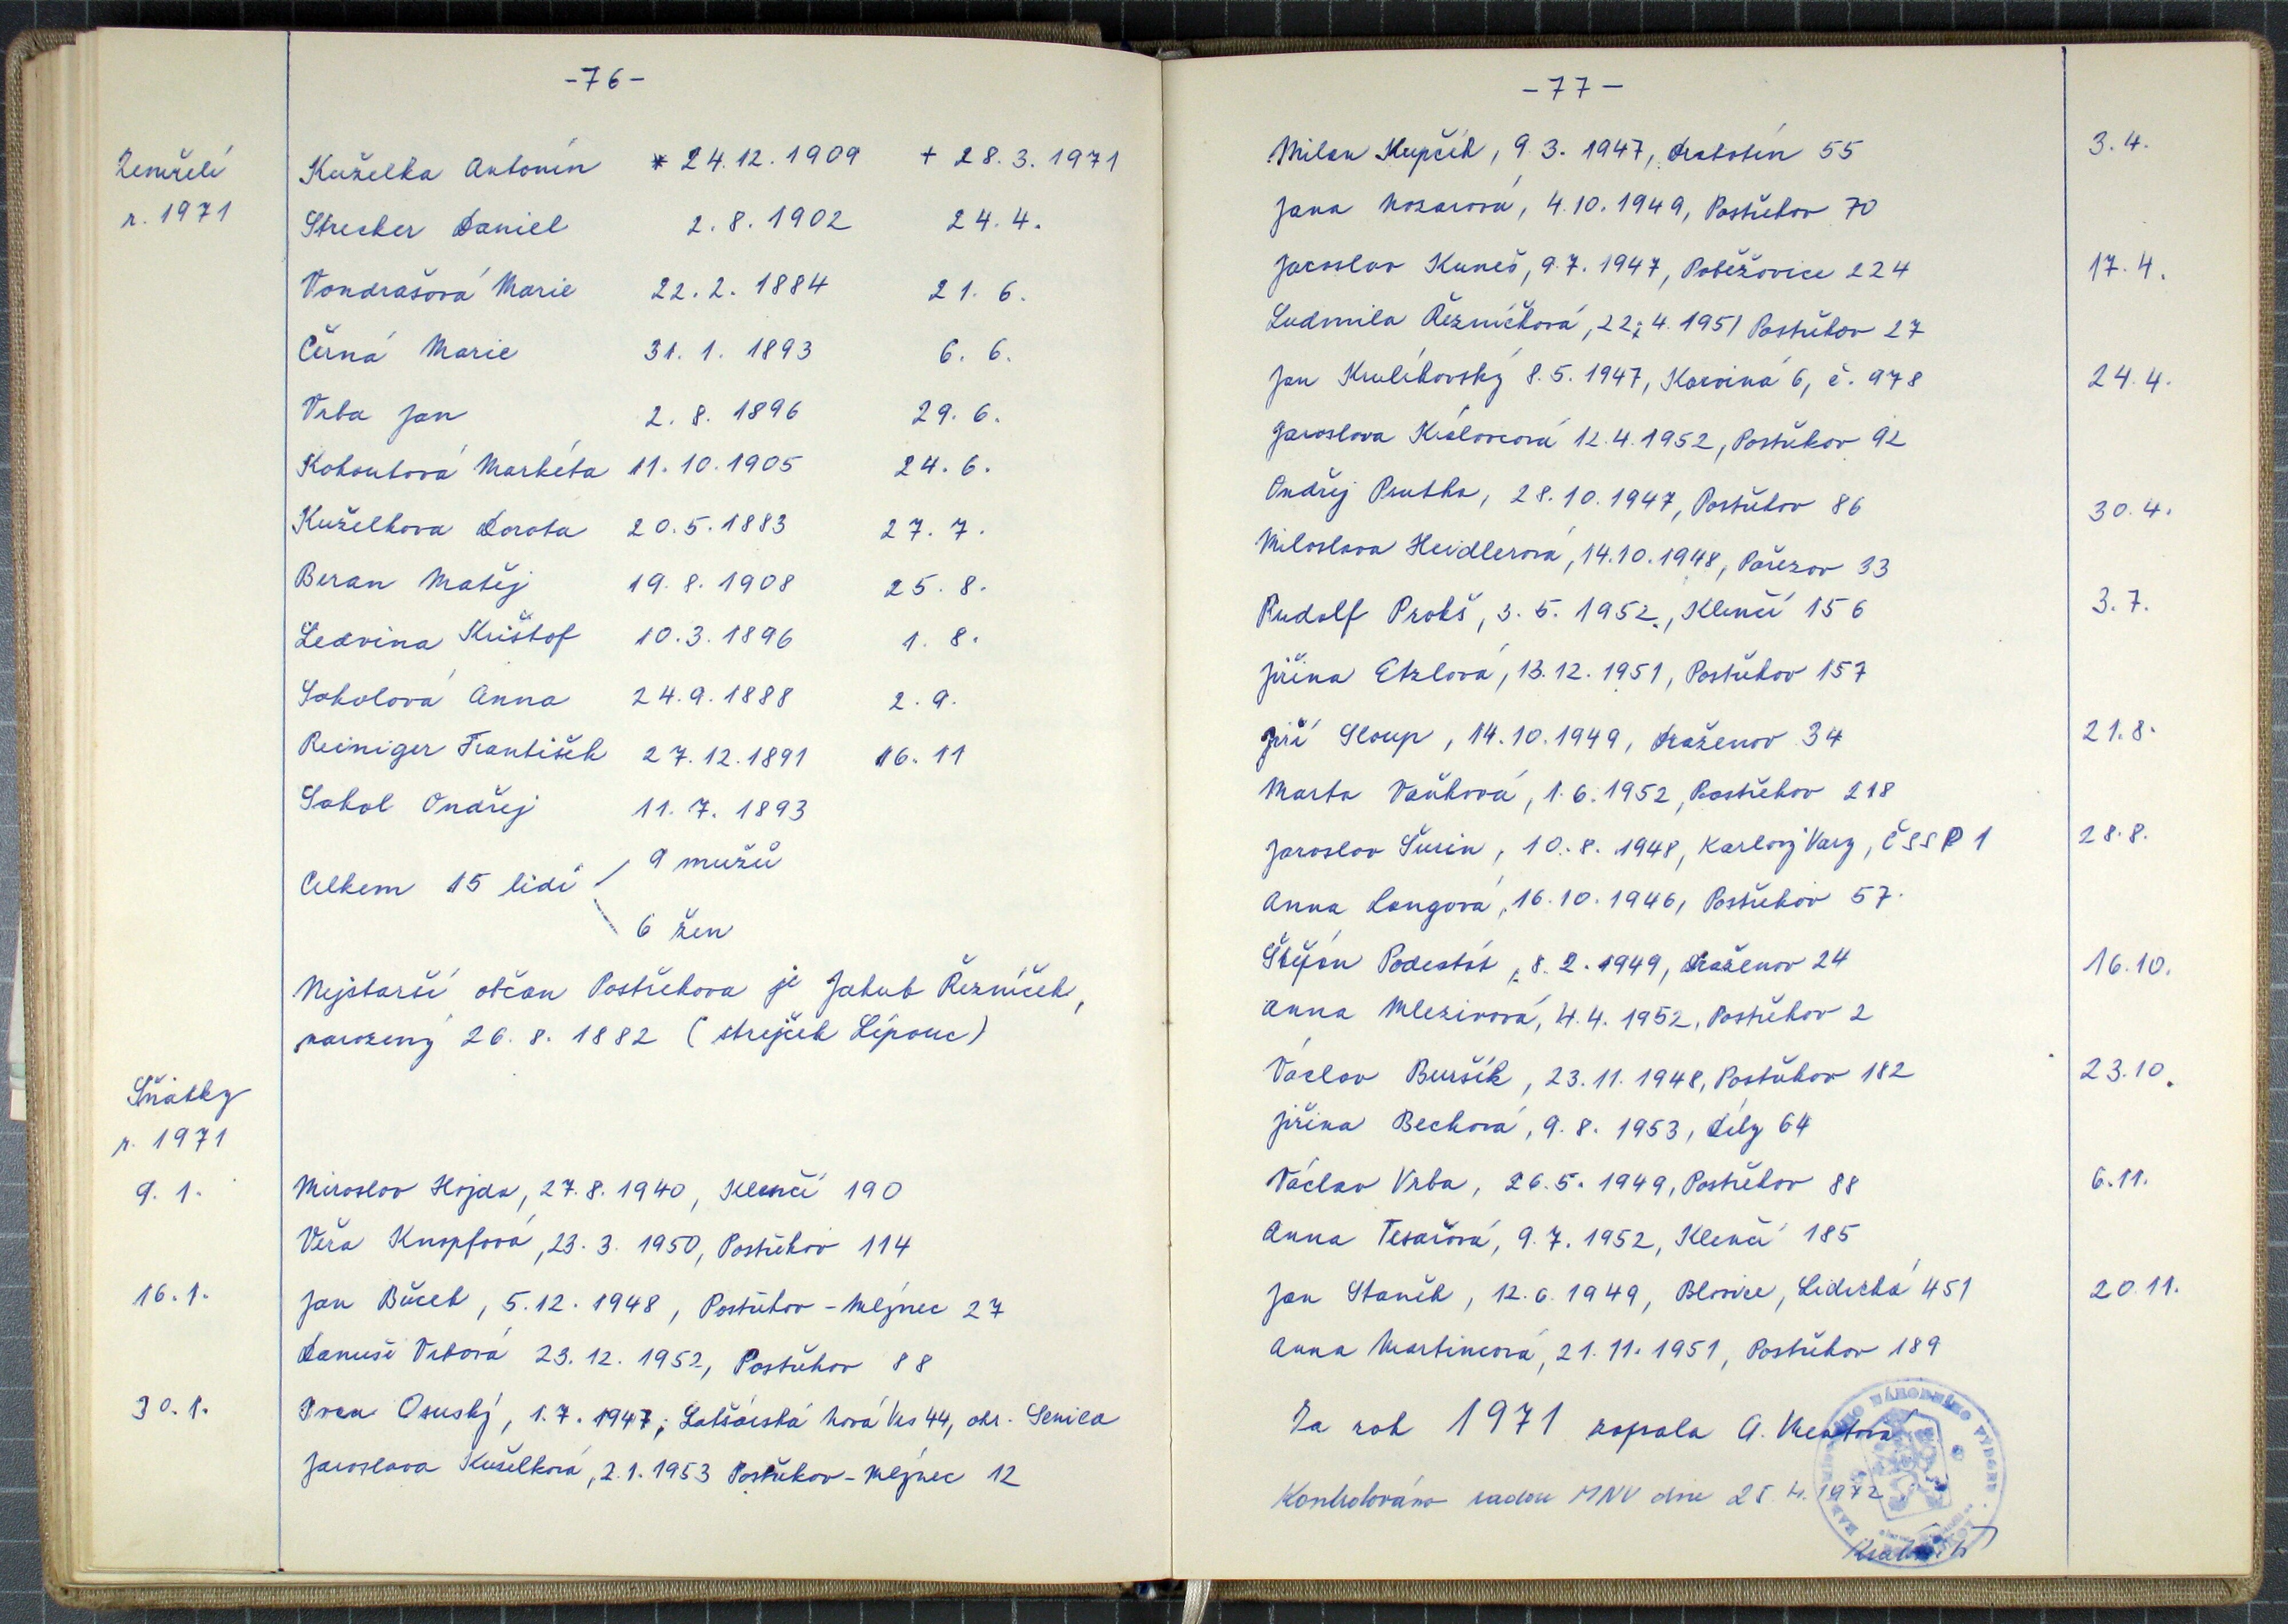 -76-
Zemřelí
r. 1971
Kuželka Antonín * 24.12.1909 + 28.3.1971
Strecker Daniel 2.8.1902 24.4.
Vondrašová Marie 22.2.1884 21.6.
Černá Marie 31.1.1893 6.6.
Vrba Jan 2.8.1896 29.6.
Kohoutová Markéta 11.10.1905 24.6.
Kuželkova Dorota 20.5.1883 27.7.
Beran Matěj 19.8.1908 25.8.
Ledvina Krištof 10.3.1896 1.8.
Sokolová Anna 24.9.1888 2.9.
Reiniger František 27.12.1891 16.11
Sokol Ondřej 11.7.1893
Celkem 15 lidí 9 mužů
6 žen
Nejstarší občan Postřekova je Jakub Řezníček,
narozený 26.8.1882 (strejček Lípouc)
Sňatky
r. 1971
9.1. Miroslav Hojda, 27.8.1940, Klenčí 190
Věra Knopfová, 23.3.1950, Postřekov 114
16.1. Jan Bůček, 5.12.1948, Postřekov - Mlýnec 27
Danuše Vrbová 23.12.1952, Postřekov 88
30.1. Ivan Osuský, 1.7.1947, Lakšárská Nová Ves 44, okr. Senica
Jaroslava Kuželková, 2.1.1953 Postřekov - Mlýnec 12
-77-
Milan Kupčík, 9.3.1947, Dratotín 55 3.4.
Jana Nozarová, 4.10.1949, Postřekov 70
Jaroslav Kuneš, 9.7.1947, Poběžovice 224 17.4.
Ludmila Řezníčková, 22.4.1951 Postřekov 27
Jan Krulikovský 8.5.1947, Karviná 6, č. 978 24.4.
Jaroslava Královcová 12.4.1952, Postřekov 92
Ondřej Prutka, 28.10.1947, Postřekov 86 30.4.
Miloslava Heidlerová, 14.10.1948, Pařezov 33
Rudolf Prokš, 3.5.1952, Klenčí 156 3.7.
Jiřina Etzlová, 13.12.1951, Postřekov 157
Jiří Sloup, 14.10.1949, Draženov 34 21.8.
Marta Vaňková, 1.6.1952, Postřekov 218
Jaroslav Šurin, 10.8.1948, Karlovy Vary, ČSSP 1 28.8.
Anna Langová, 16.10.1946, Postřekov 57.
Štěfán Podestát, 8.2.1949, Draženov 24 16.10.
Anna Mlezivová, 4.4.1952, Postřekov 2
Václav Buršík, 23.11.1948, Postřekov 182 23.10.
Jiřina Becková, 9.8.1953, Díly 64
Václav Vrba, 26.5.1949, Postřekov 88 6.11.
Anna Tesařová, 9.7.1952, Klenčí 185
Jan Staněk, 12.6.1949, Blovice, Lidická 451 20.11.
Anna Martincová, 21.11.1951, Postřekov 189
Za rok 1971 zapsala A.
Kontrolováno radou MNV dne 25.4.1972